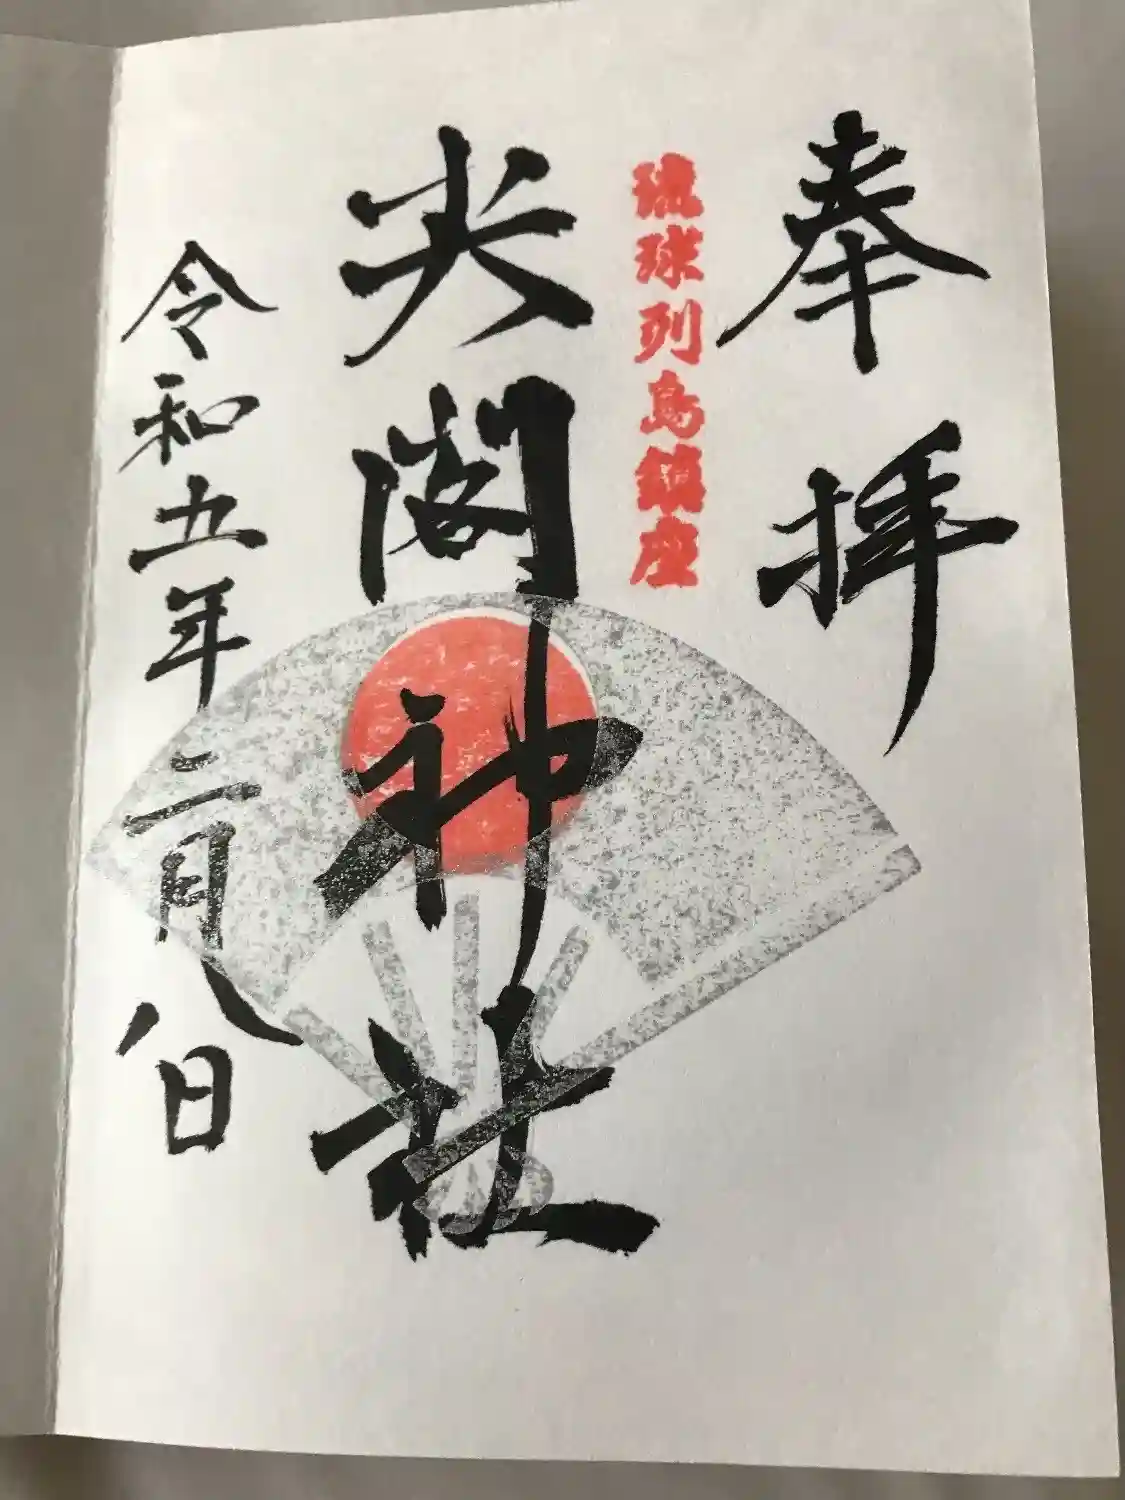 奉拝
琉球列島鎮座
尖閣神社
令和五年二月八日